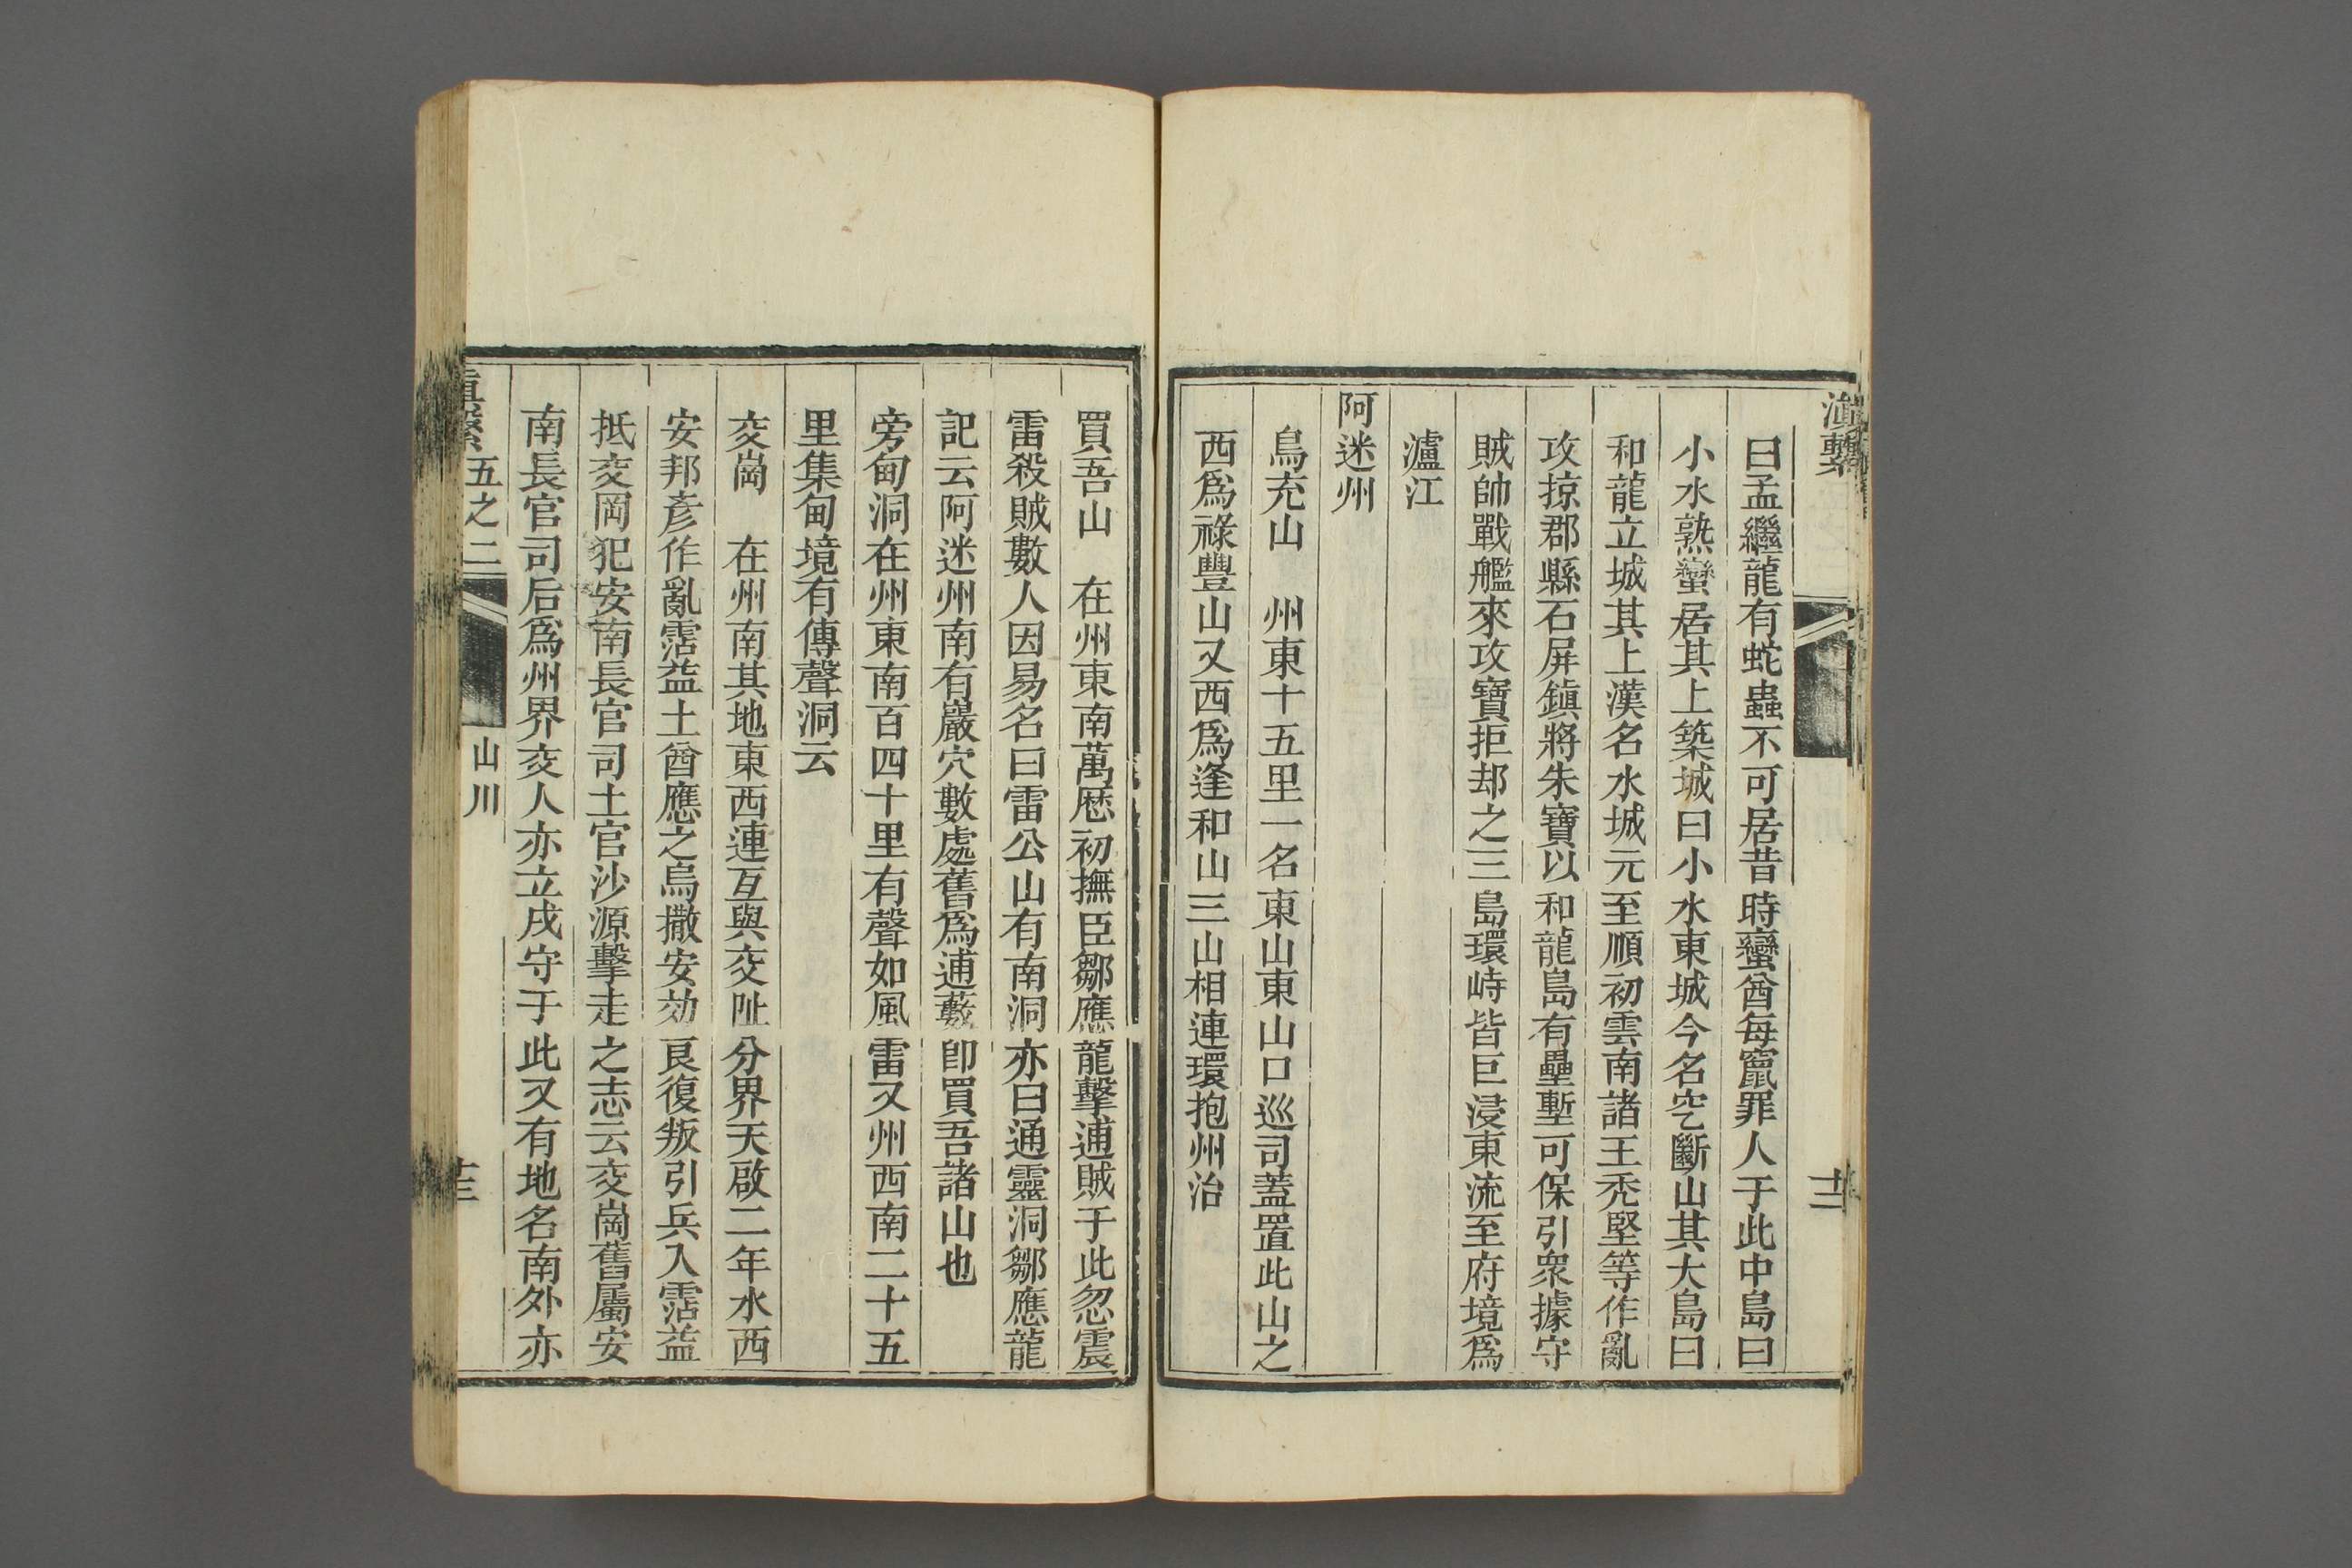 滇繫
十二
曰孟繼龍有蛇蟲不可居昔時蠻酋每竄罪人于此中島曰
小水熟蠻居其上築城曰小水東城今名空斷山其大島曰
和龍立城其上漢名水城元至順初雲南諸王禿堅等作亂
攻掠郡縣石屏鎮將朱寶以和龍島有壘塹可保引衆據守
賊帥戰艦來攻寶拒却之三島環峙皆巨浸東流至府境爲
瀘江
阿迷州
鳥充山　州東十五里一名東山東山口巡司蓋置此山之
西爲祿豐山又西爲逢和山三山相連環抱州治
買吾山　在州東南萬厯初撫臣鄒應龍擊逋賊于此忽震
雷殺賊數人因易名曰雷公山有南洞亦曰通靈洞鄒應龍
記云阿迷州南有巖穴數處舊爲逋藪卽買吾諸山也
旁甸洞在州東南百四十里有聲如風雷又州西南二十五
里集甸境有傳聲洞云
交崗　在州南其地東西連互與交阯分界天啟二年水西
安邦彥作亂霑益土酋應之烏撒安効良復叛引兵入霑益
抵交岡犯安南長官司土官沙源擊走之志云交崗舊屬安
南長官司后爲州界交人亦立戍守于此又有地名南外亦
滇繫 五之二
山川
十三